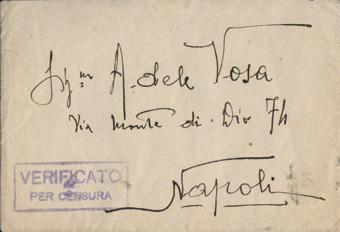 Sig.na Adele Vosa
Via Monte di Dio 74
Napoli
VERIFICATO
PER CENSURA